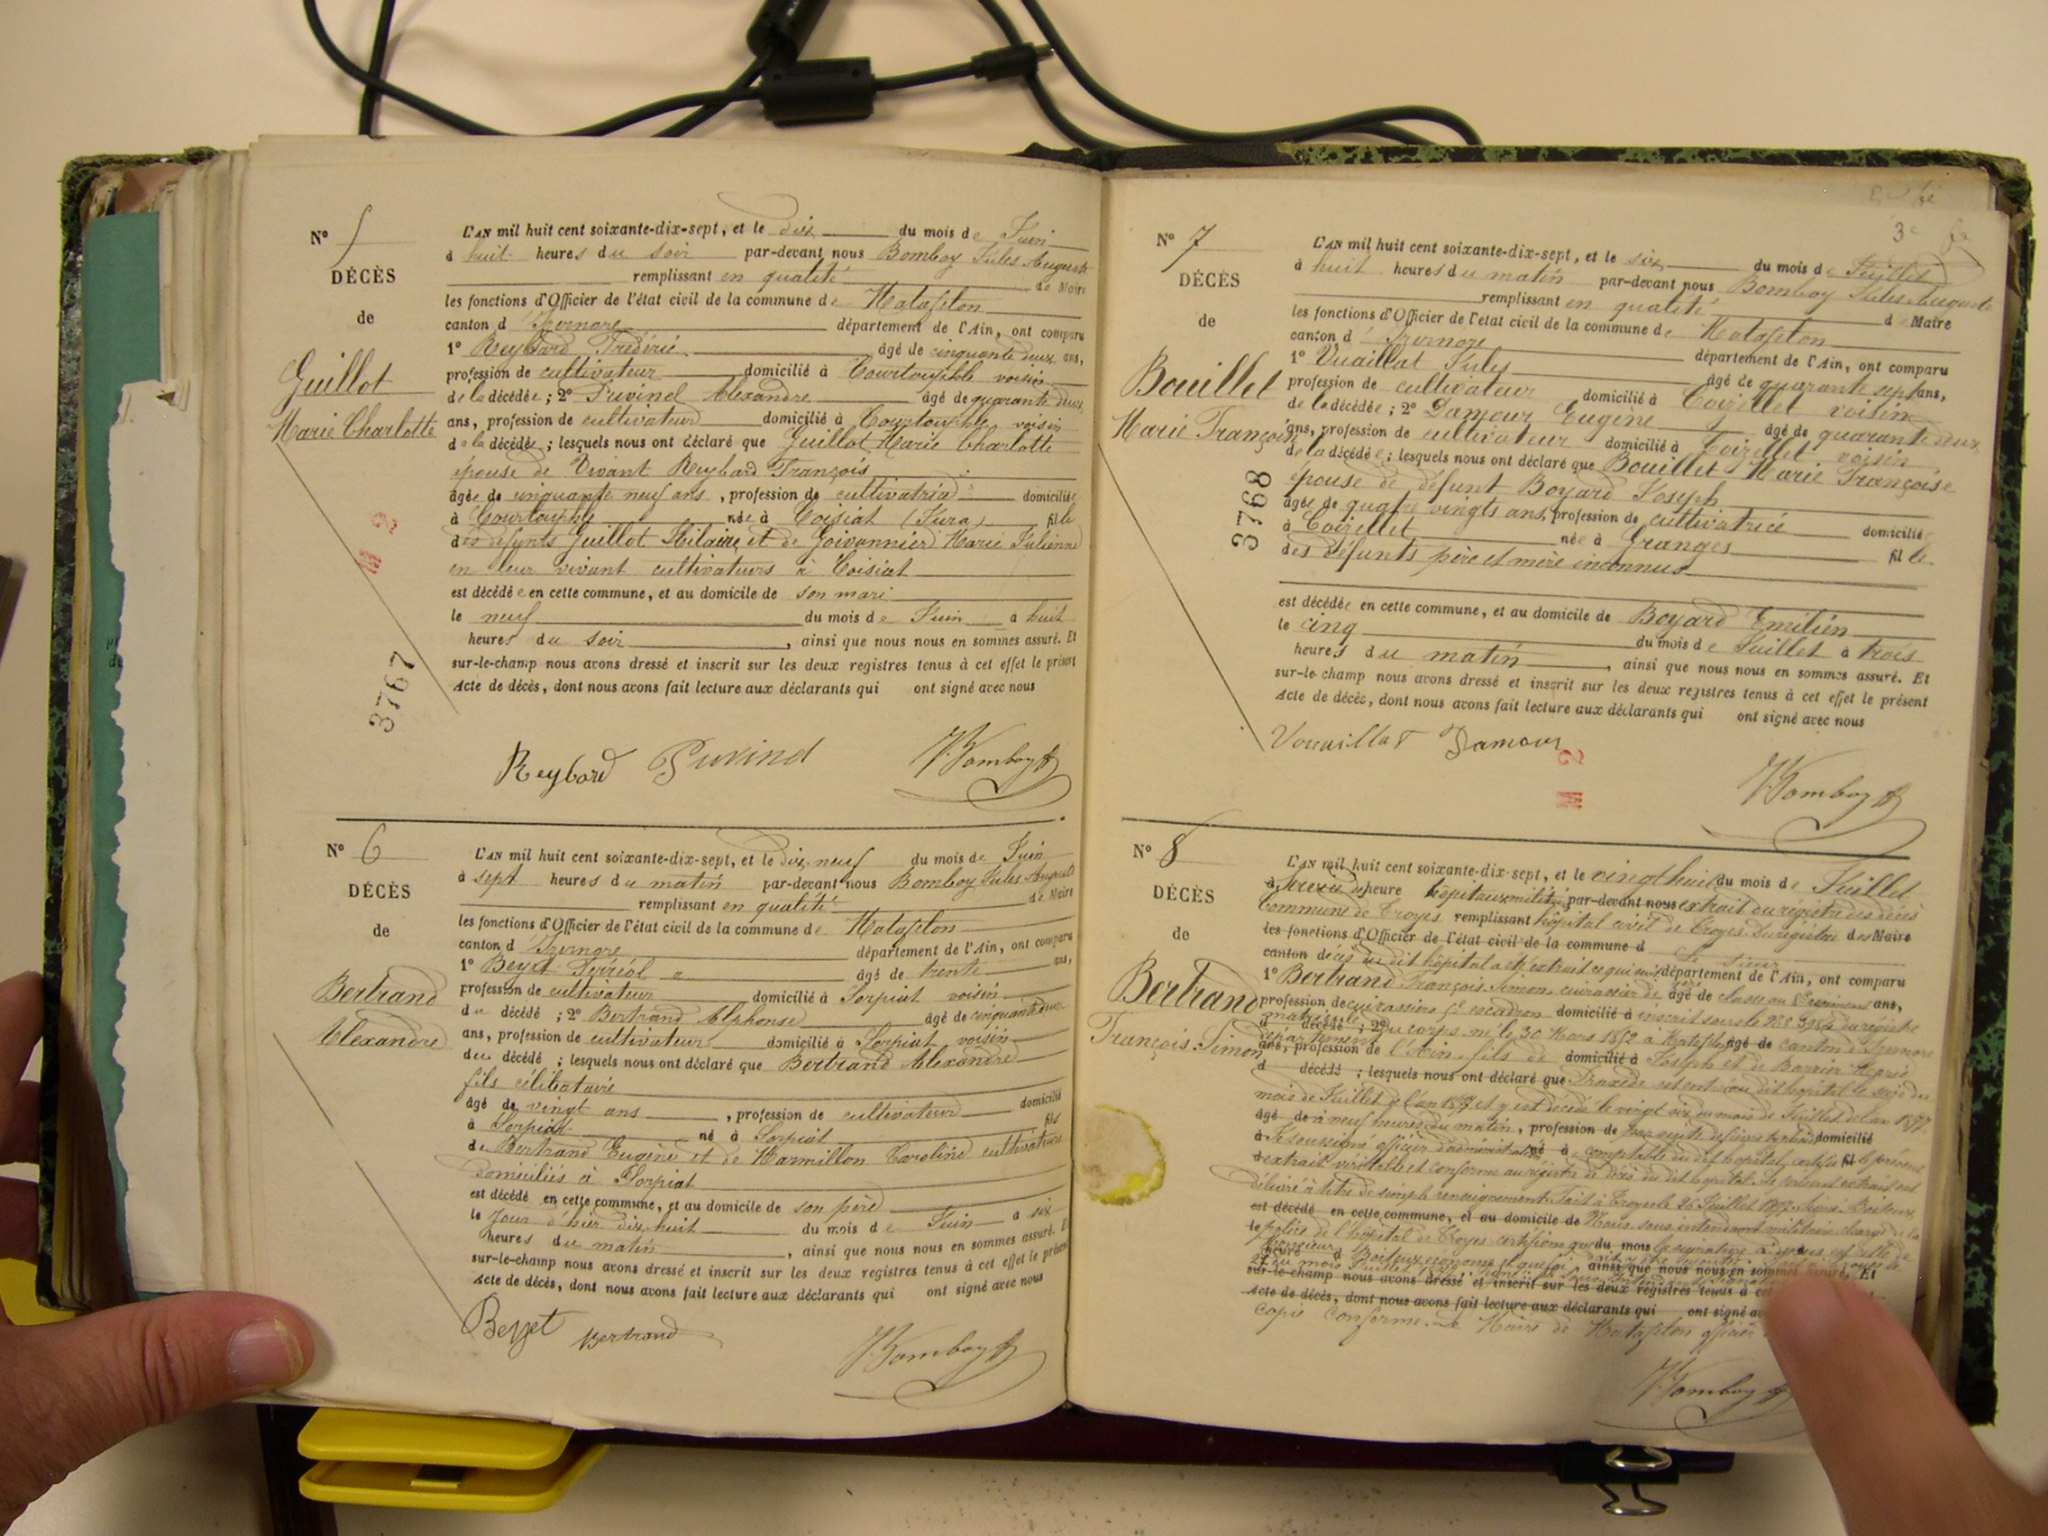 Nº 5
DÉCÈS
de
Guillot
Marie Charlotte
3767
M 2
L'AN mil huit cent soixante-dix-sept, et le dix du mois de Juin
à huit heures du soir par-devant nous Bomboy Jules Auguste
remplissant en qualité de Maire
les fonctions d'Officier de l'état civil de la commune de Matafelon
canton d'Izernore département de l'Ain, ont comparu
1º Reybard Frédéric âgé de cinquante deux ans,
profession de cultivateur domicilié à Courtouphle voisin
de la décédée ; 2º Alexandre âgé de quarante deux
ans, profession de cultivateur domicilié à Courtouphle voisin
de la décédée ; lesquels nous ont déclaré que Guillot Marie Charlotte
épouse de vivant Reybard François
âgée de cinquante neuf ans, profession de cultivatrice domiciliée
à Courtouphle née à Coisiat (Jura) fille
des défunts Guillot Hilaire et de Marie Julienne
en leur vivant cultivateurs à Coisiat
est décédée en cette commune, et au domicile de son mari
le neuf du mois de Juin à huit
heures du soir, ainsi que nous nous en sommes assuré. Et
sur-le-champ nous avons dressé et inscrit sur les deux registres tenus à cet effet le présent
Acte de décès, dont nous avons fait lecture aux déclarants qui ont signé avec nous
Reybard Puvind JBomboy
Nº 6
DÉCÈS
de
Bertrand
Alexandre
L'AN mil huit cent soixante-dix-sept, et le dix neuf du mois de Juin
à sept heures du matin par-devant nous Bomboy Jules Auguste
remplissant en qualité de Maire
les fonctions d'Officier de l'état civil de la commune de Matafelon
canton d'Izernore département de l'Ain, ont comparu
1º Beyet Ferréol âgé de trente ans,
profession de cultivateur domicilié à Corpiat voisin
du décédé ; 2º Bertrand Alphonse âgé de cinquante
ans, profession de cultivateur domicilié à Corpiat voisin
du décédé ; lesquels nous ont déclaré que Bertrand Alexandre
fils célibataire
âgé de vingt ans, profession de cultivateur domicilié
à Corpiat né à Corpiat fils
de Bertrand Eugène et de Marmillon Caroline cultivateurs
domiciliés à Corpiat
est décédé en cette commune, et au domicile de son père
le jour d'hier dix huit du mois de Juin à six
heures du matin, ainsi que nous nous en sommes assuré. Et
sur-le-champ nous avons dressé et inscrit sur les deux registres tenus à cet effet le présent
Acte de décès, dont nous avons fait lecture aux déclarants qui ont signé avec nous
Beyet Bertrand JBomboy
3e
Nº 7
DÉCÈS
de
Bouillet
Marie Françoise
3768
L'AN mil huit cent soixante-dix-sept, et le six du mois de Juillet
à huit heures du matin par-devant nous Bomboy Jules Auguste
remplissant en qualité de Maire
les fonctions d'Officier de l'état civil de la commune de Matafelon
canton d'Izernore département de l'Ain, ont comparu
1º Vuaillat Jules âgé de quarante sept ans,
profession de cultivateur domicilié à Coizellet voisin
de la décédée ; 2º Damour Eugène âgé de quarante deux
ans, profession de cultivateur domicilié à Coizellet voisin
de la décédée ; lesquels nous ont déclaré que Bouillet Marie Françoise
épouse de défunt Boyard Joseph
âgée de quatre vingts ans, profession de cultivatrice domiciliée
à Coizellet née à Granges fille
des défunts père et mère inconnus
est décédée en cette commune, et au domicile de Boyard Emilien
le cinq du mois de Juillet à trois
heures du matin, ainsi que nous nous en sommes assuré. Et
sur-le-champ nous avons dressé et inscrit sur les deux registres tenus à cet effet le présent
Acte de décès, dont nous avons fait lecture aux déclarants qui ont signé avec nous
Vuaillat Damour
M 2
JBomboy
Nº 8
DÉCÈS
de
Bertrand
François Simon
L'AN mil huit cent soixante-dix-sept, et le vingt huit du mois de Juillet
à heure hôpitaux militaires par-devant nous extrait du régistre des décès
Commune de Troyes remplissant hôpital civil de Troyes. Du régistre des Maire
les fonctions d'Officier de l'état civil de la commune d
canton décès du dit hôpital a été extrait ce qui suit département de l'Ain, ont comparu
1º Bertrand François Simon cuirassier de âgé de classe au régiment ans,
profession de cuirassiers escadron domicilié à inscrit sous le Nº du régistre
matricule d décédé ; 2º du corps, né le 30 Mars 1852 à Matafelon âgé de canton d'Izernore
département ans, profession de l'Ain, fils de domicilié à Joseph et de Marie
d décédé ; lesquels nous ont déclaré que entré au dit hôpital le du
mois de Juillet de l'an 1877 et y est décédé le vingt six du mois de Juillet de l'an 1877
âgé de à neuf heures du matin, profession de par suite de fièvre domicilié
à Je soussigné officier d'administration né à comptable du dit hopital, certifie fil le présent
d extrait véritable et conforme au régistre de décès du dit hopital. Le présent extrait est
délivré à titre de simple renseignement. Fait à Troyes le 26 Juillet 1877. Signé: Boiteux
est décédé en cette commune, et au domicile de Nous, sous intendant militaire chargé de la
le police de l'hôpital de Troyes certifions que du mois la signature ci-dessus est celle de
Monsieur heure d Boiteux, ainsi que nous nous en sommes assuré. Et
sur-le-champ nous avons dressé et inscrit sur les deux registres tenus à cet
Acte de décès, dont nous avons fait lecture aux déclarants qui ont signé
copie conforme. Le Maire de Matafelon officier
JBomboy